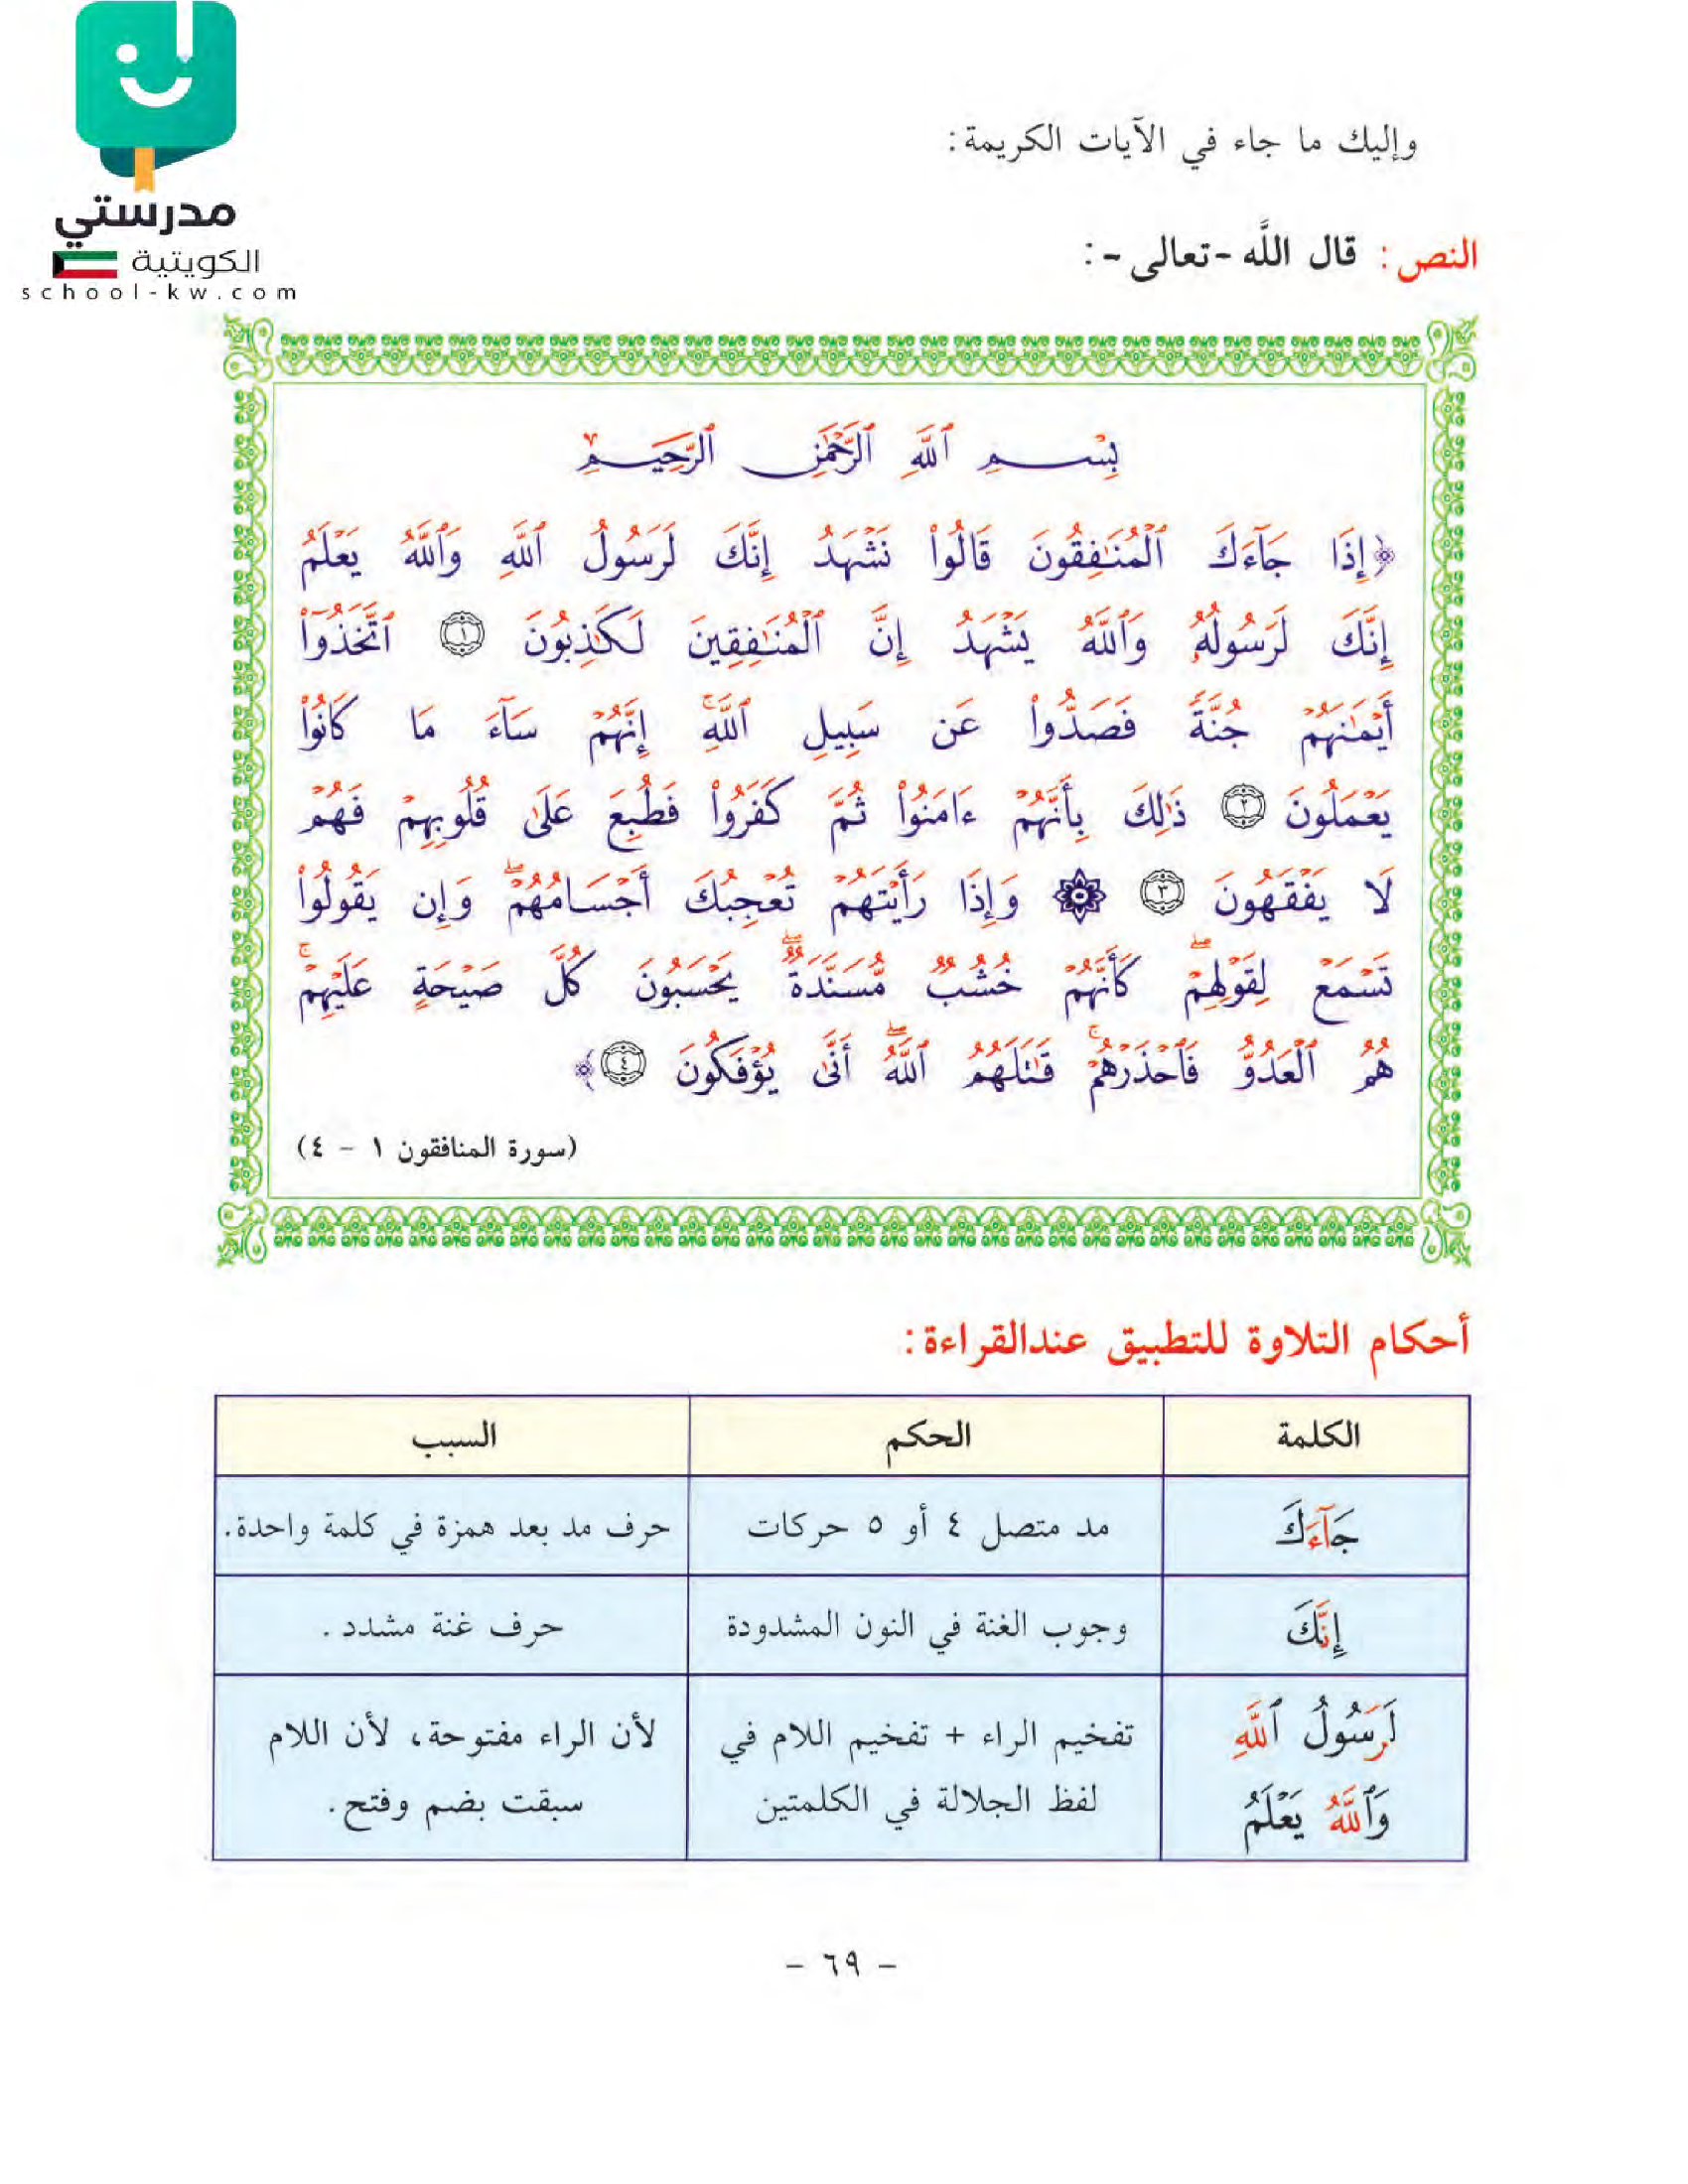 مدرستي
الكويتية
school-kw.com
وإليك ما جاء في الآيات الكريمة:
النص: قال اللَّه -تعالى-:
بِسْمِ ٱللَّهِ ٱلرَّحْمَٰنِ ٱلرَّحِيمِ
﴿إِذَا جَآءَكَ ٱلْمُنَٰفِقُونَ قَالُوا۟ نَشْهَدُ إِنَّكَ لَرَسُولُ ٱللَّهِ وَٱللَّهُ يَعْلَمُ
إِنَّكَ لَرَسُولُهُۥ وَٱللَّهُ يَشْهَدُ إِنَّ ٱلْمُنَٰفِقِينَ لَكَٰذِبُونَ ١ ٱتَّخَذُوٓا۟
أَيْمَٰنَهُمْ جُنَّةً فَصَدُّوا۟ عَن سَبِيلِ ٱللَّهِ ۚ إِنَّهُمْ سَآءَ مَا كَانُوا۟
يَعْمَلُونَ ٢ ذَٰلِكَ بِأَنَّهُمْ ءَامَنُوا۟ ثُمَّ كَفَرُوا۟ فَطُبِعَ عَلَىٰ قُلُوبِهِمْ فَهُمْ
لَا يَفْقَهُونَ ٣ ۞ وَإِذَا رَأَيْتَهُمْ تُعْجِبُكَ أَجْسَامُهُمْ ۖ وَإِن يَقُولُوا۟
تَسْمَعْ لِقَوْلِهِمْ ۖ كَأَنَّهُمْ خُشُبٌ مُّسَنَّدَةٌ ۖ يَحْسَبُونَ كُلَّ صَيْحَةٍ عَلَيْهِمْ ۚ
هُمُ ٱلْعَدُوُّ فَٱحْذَرْهُمْ ۚ قَٰتَلَهُمُ ٱللَّهُ ۖ أَنَّىٰ يُؤْفَكُونَ ٤﴾
(سورة المنافقون ١ - ٤)
أحكام التلاوة للتطبيق عندالقراءة:
الكلمة الحكم السبب
جَآءَكَ مد متصل ٤ أو ٥ حركات حرف مد بعد همزة في كلمة واحدة.
إِنَّكَ وجوب الغنة في النون المشدودة حرف غنة مشدد .
لَرَسُولُ ٱللَّهِ تفخيم الراء + تفخيم اللام في لأن الراء مفتوحة، لأن اللام
وَٱللَّهُ يَعْلَمُ لفظ الجلالة في الكلمتين سبقت بضم وفتح.
- ٦٩ -